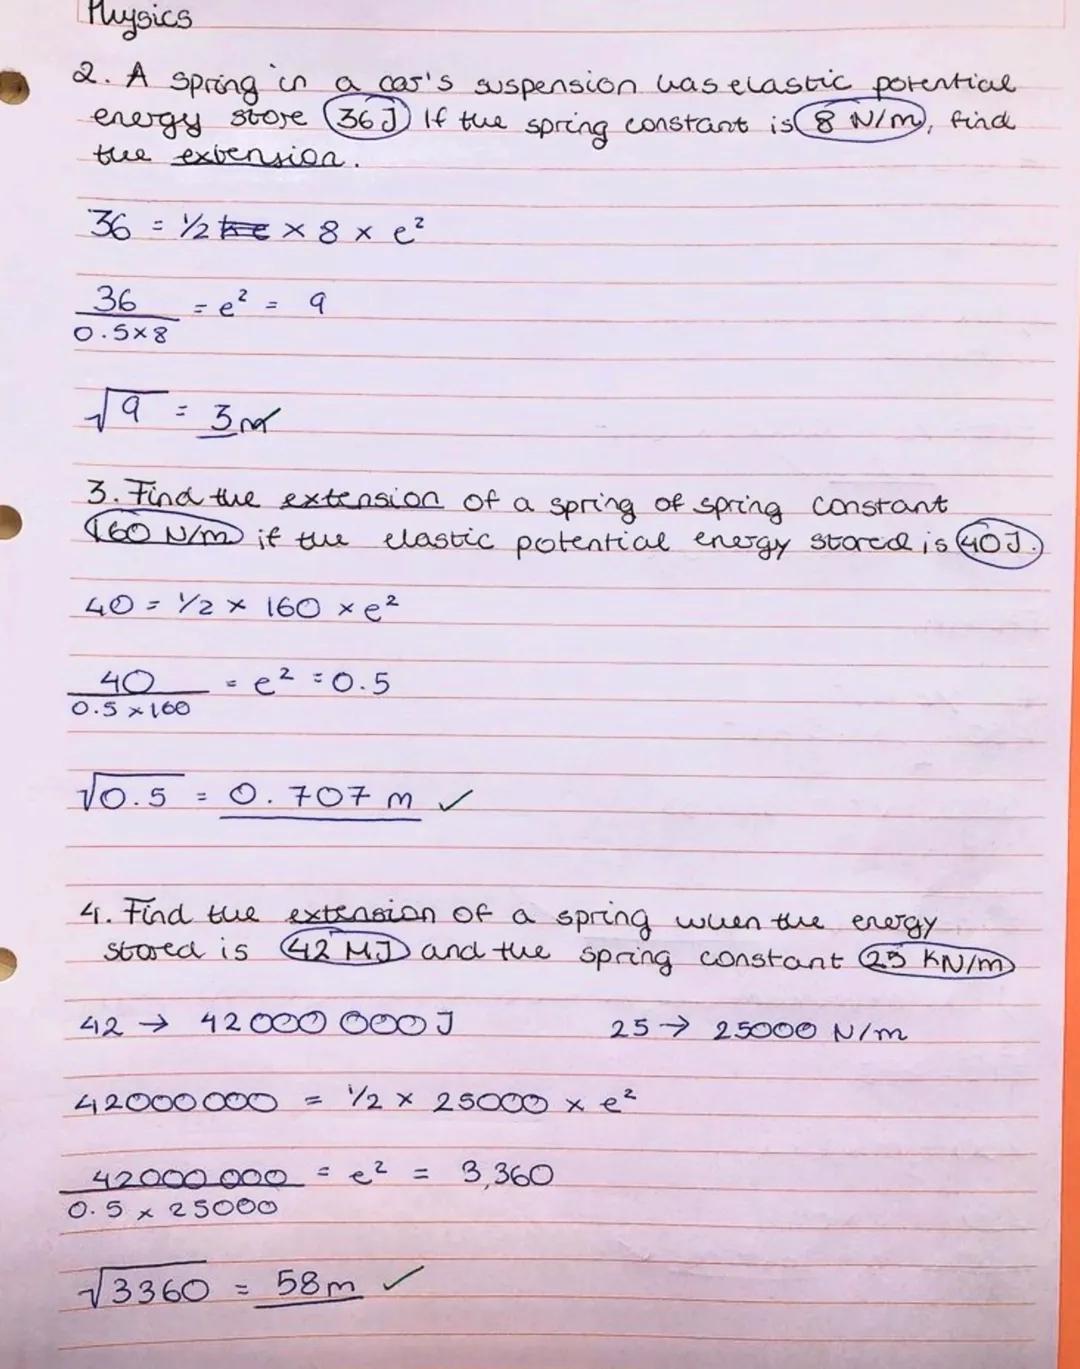 Physics
2. A spring in a car's suspension has elastic potential
energy store 36J If the spring constant is 8 N/m, find
the extension.
36 = ½ ke × 8 × e²
36 = e² = 9
0.5×8
√9 = 3m
3. Find the extension of a spring of spring constant
160 N/m if the elastic potential energy stored is 40J.
40 = ½ × 160 × e²
40 = e² = 0.5
0.5 × 160
√0.5 = 0.707 m ✓
4. Find the extension of a spring when the energy
stored is 42 MJ and the spring constant 25 KN/m
42 → 42000 000J 25 → 25000 N/m
42000000 = ½ × 25000 × e²
42000 000 = e² = 3,360
0.5 × 25000
√3360 = 58m ✓